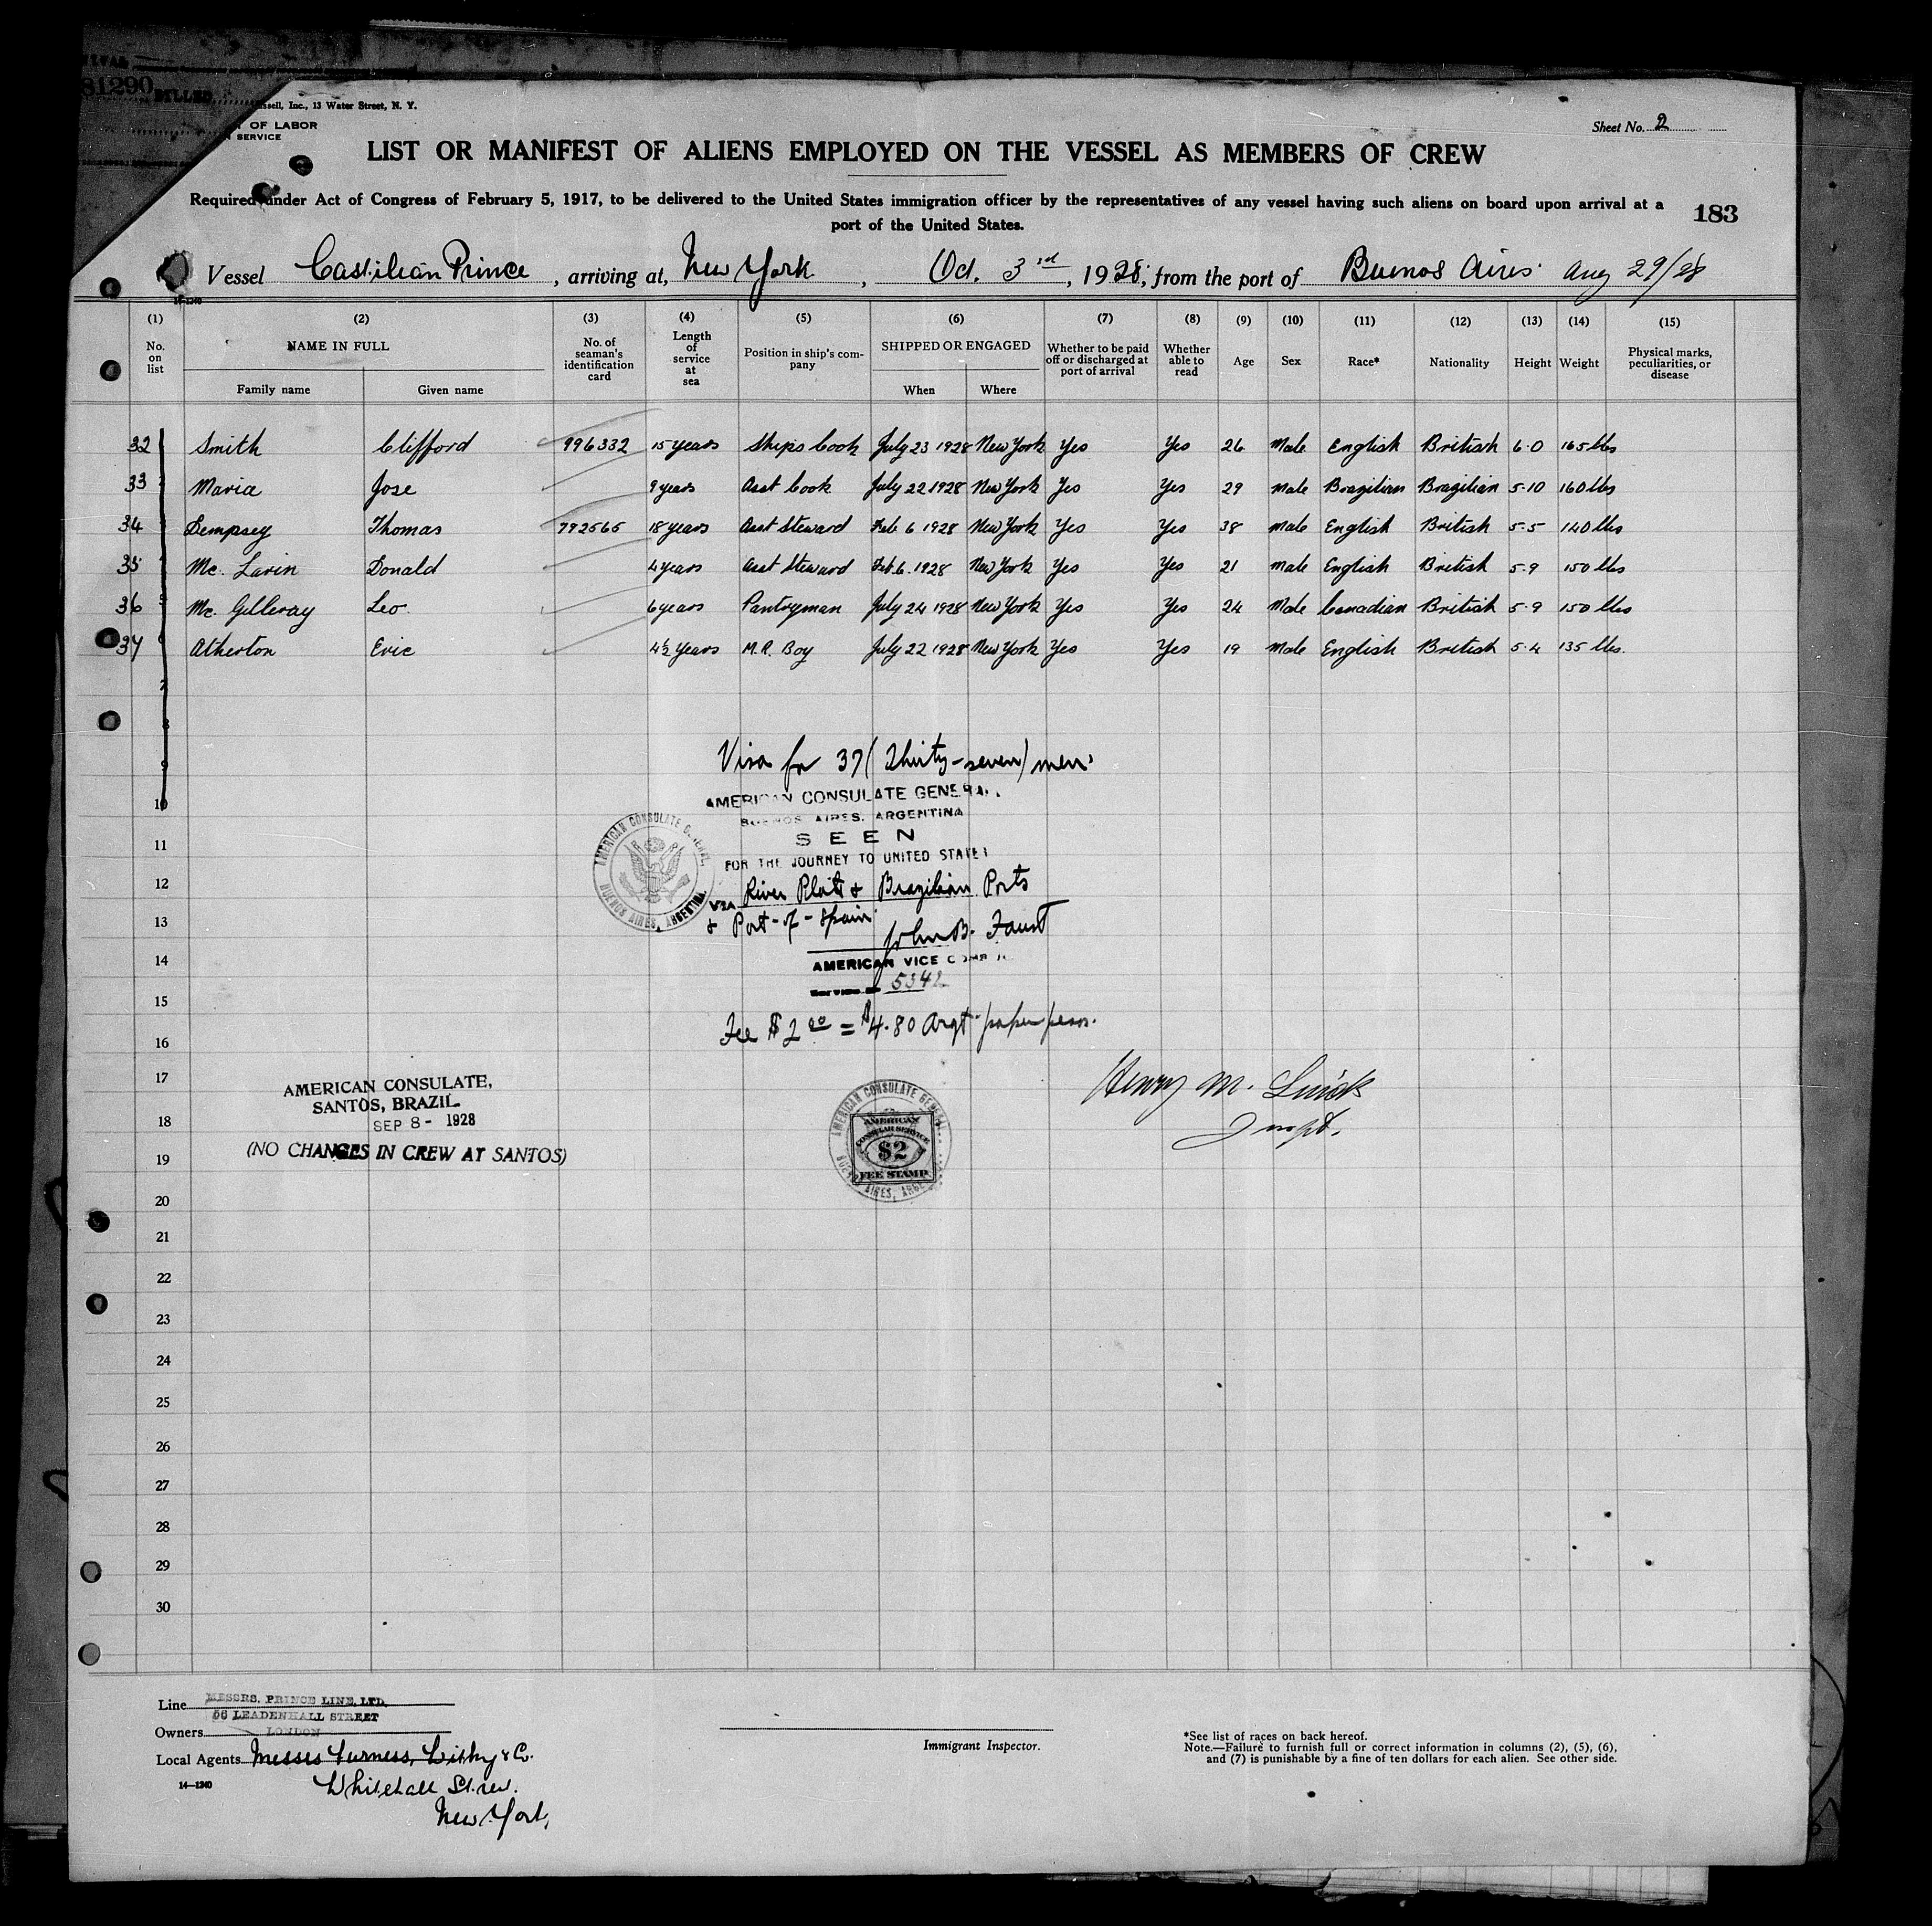 81290
BILLED
ssell, Inc., 13 Water Street, N. Y.
OF LABOR
SERVICE
Sheet No. 2
LIST OR MANIFEST OF ALIENS EMPLOYED ON THE VESSEL AS MEMBERS OF CREW
Required under Act of Congress of February 5, 1917, to be delivered to the United States immigration officer by the representatives of any vessel having such aliens on board upon arrival at a
port of the United States.
183
Vessel Castilian Prince, arriving at, New York, Oct. 3rd, 1928, from the port of Buenos Aires Aug 29/28
(1) (2) (3) (4) (5) (6) (7) (8) (9) (10) (11) (12) (13) (14) (15)
No. on list NAME IN FULL No. of seaman's identification card Length of service at sea Position in ship's company SHIPPED OR ENGAGED Whether to be paid off or discharged at port of arrival Whether able to read Age Sex Race* Nationality Height Weight Physical marks, peculiarities, or disease
Family name Given name When Where
32 Smith Clifford 996332 15 years Ships Cook July 23 1928 New York Yes Yes 26 Male English British 6.0 165 lbs
33 Maria Jose 9 years Asst Cook July 22 1928 New York Yes Yes 29 Male Brazilian Brazilian 5.10 160 lbs
34 Dempsey Thomas 792565 18 years Asst Steward Feb. 6 1928 New York Yes Yes 38 Male English British 5.5 140 lbs
35 Mc. Lavin Donald 4 years Asst Steward Feb. 6. 1928 New York Yes Yes 21 Male English British 5.9 150 lbs
36 Mc. Gilleray Leo 6 years Pantryman July 24 1928 New York Yes Yes 24 Male Canadian British 5.9 150 lbs
37 Atherton Eric 4½ years M.R. Boy July 22 1928 New York Yes Yes 19 Male English British 5.4 135 lbs.
7
8
9
Visa for 37 (Thirty-seven) men
10
AMERICAN CONSULATE GENERAL
BUENOS AIRES, ARGENTINA
11
SEEN
FOR THE JOURNEY TO UNITED STATES
AMERICAN CONSULATE GENERAL
BUENOS AIRES, ARGENTINA
12
via River Plate & Brazilian Ports
13
& Port-of-Spain
John B. Faust
14
AMERICAN VICE CONSUL
15
5342
Fee $2.00 = $4.80 Argt. paper pesos.
16
17
Henry M.
Inspt.
AMERICAN CONSULATE,
SANTOS, BRAZIL
18
SEP 8 - 1928
19
(NO CHANGES IN CREW AT SANTOS)
AMERICAN CONSULATE GENERAL
AMERICAN
CONSULAR SERVICE
$2
FEE STAMP
BUENOS AIRES, ARGE
20
21
22
23
24
25
26
27
28
29
30
Line MESSRS. PRINCE LINE, LTD.
56 LEADENHALL STREET
Owners LONDON
Local Agents Messrs Furness, Withy & Co.
Whitehall Street.
New York,
14—1240
Immigrant Inspector.
*See list of races on back hereof.
Note.—Failure to furnish full or correct information in columns (2), (5), (6),
and (7) is punishable by a fine of ten dollars for each alien. See other side.